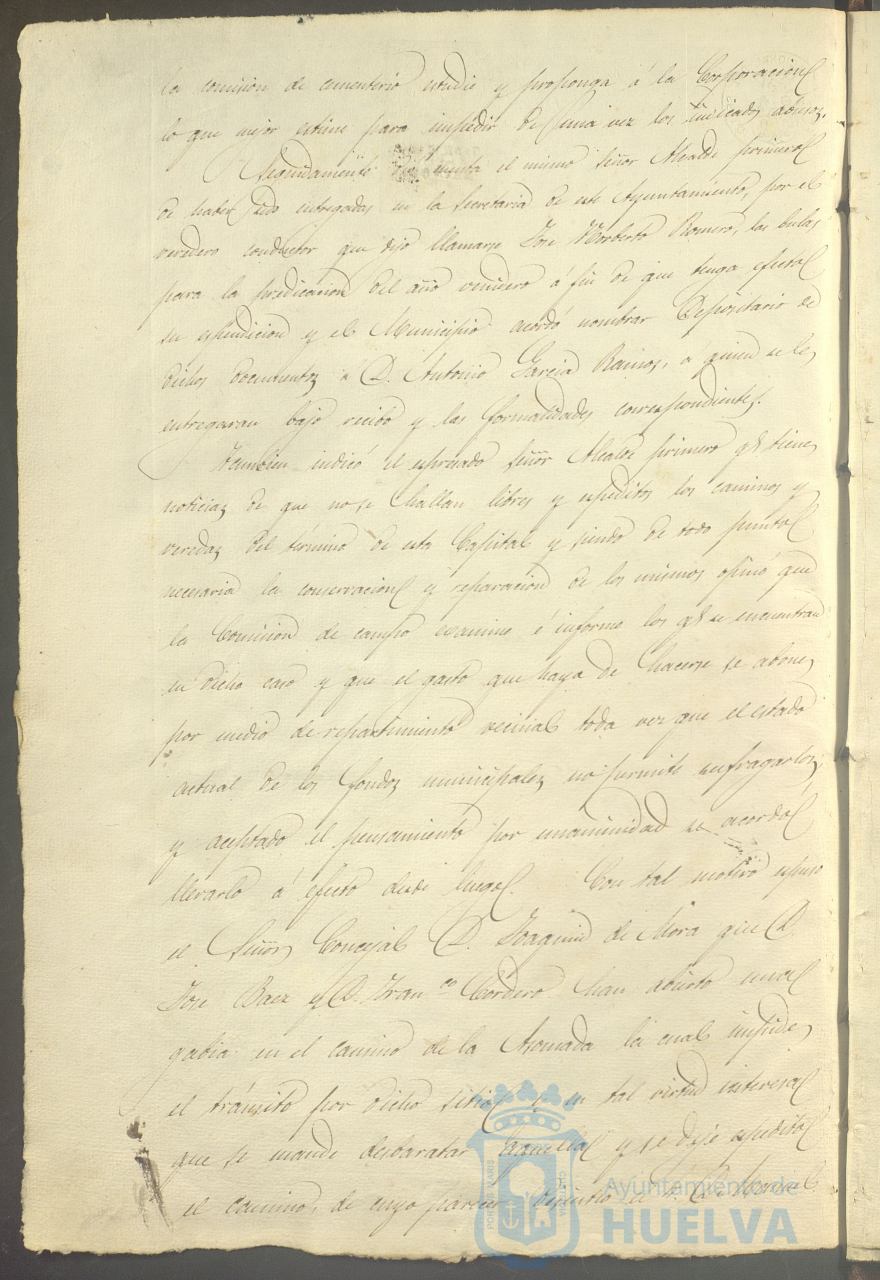 la comision de cementerio estudie y proponga á la Corporacion
lo que mejor estime para impedir de una vez los indicados abusos.
Seguidamente dió cuenta el mismo Señor Alcalde primero
de haber sido entregadas en la Secretaria de este Ayuntamiento, por el
veredero conductor que dijo llamarse Jose Norberto Romero, las bulas
para la predicacion del año venidero á fin de que tenga efecto
su espendicion y el Municipio acordó nombrar Depositario de
dichos documentos a D. Antonio Garcia Ramos, a quien se les
entregaran bajo recibo y las formalidades correspondientes.
Tambien indicó el espresado Señor Alcalde primero qe tiene
noticias de que no se hallan libres y espeditos los caminos y
veredas del término de esta Capital y siendo de todo punto
necesaria la conservacion y reparacion de los mismos opinó que
la Comision de campo examine é informe los qe se encuentran
en dicho caso y que el gasto que haya de hacerse se abone
por medio de repartimiento vecinal toda vez que el estado
actual de los fondos municipales no permite sufragarlos
y aceptado el pensamiento por unanimidad se acordó
llevarlo á efecto desde luego. Con tal motivo espuso
el Señor Concejal D. Joaquin de Mora que D.
Jose Baez y D. Franco Cordero han abierto una
gabia en el camino de la Asomada la cual impide
el tránsito por dicho sitio y en tal virtud interesa
que se mande desbaratar aquella y se deje espedito
el camino, de cuyo parecer disintio el Sr. D. Manuel
Ayuntamiento de
HUELVA